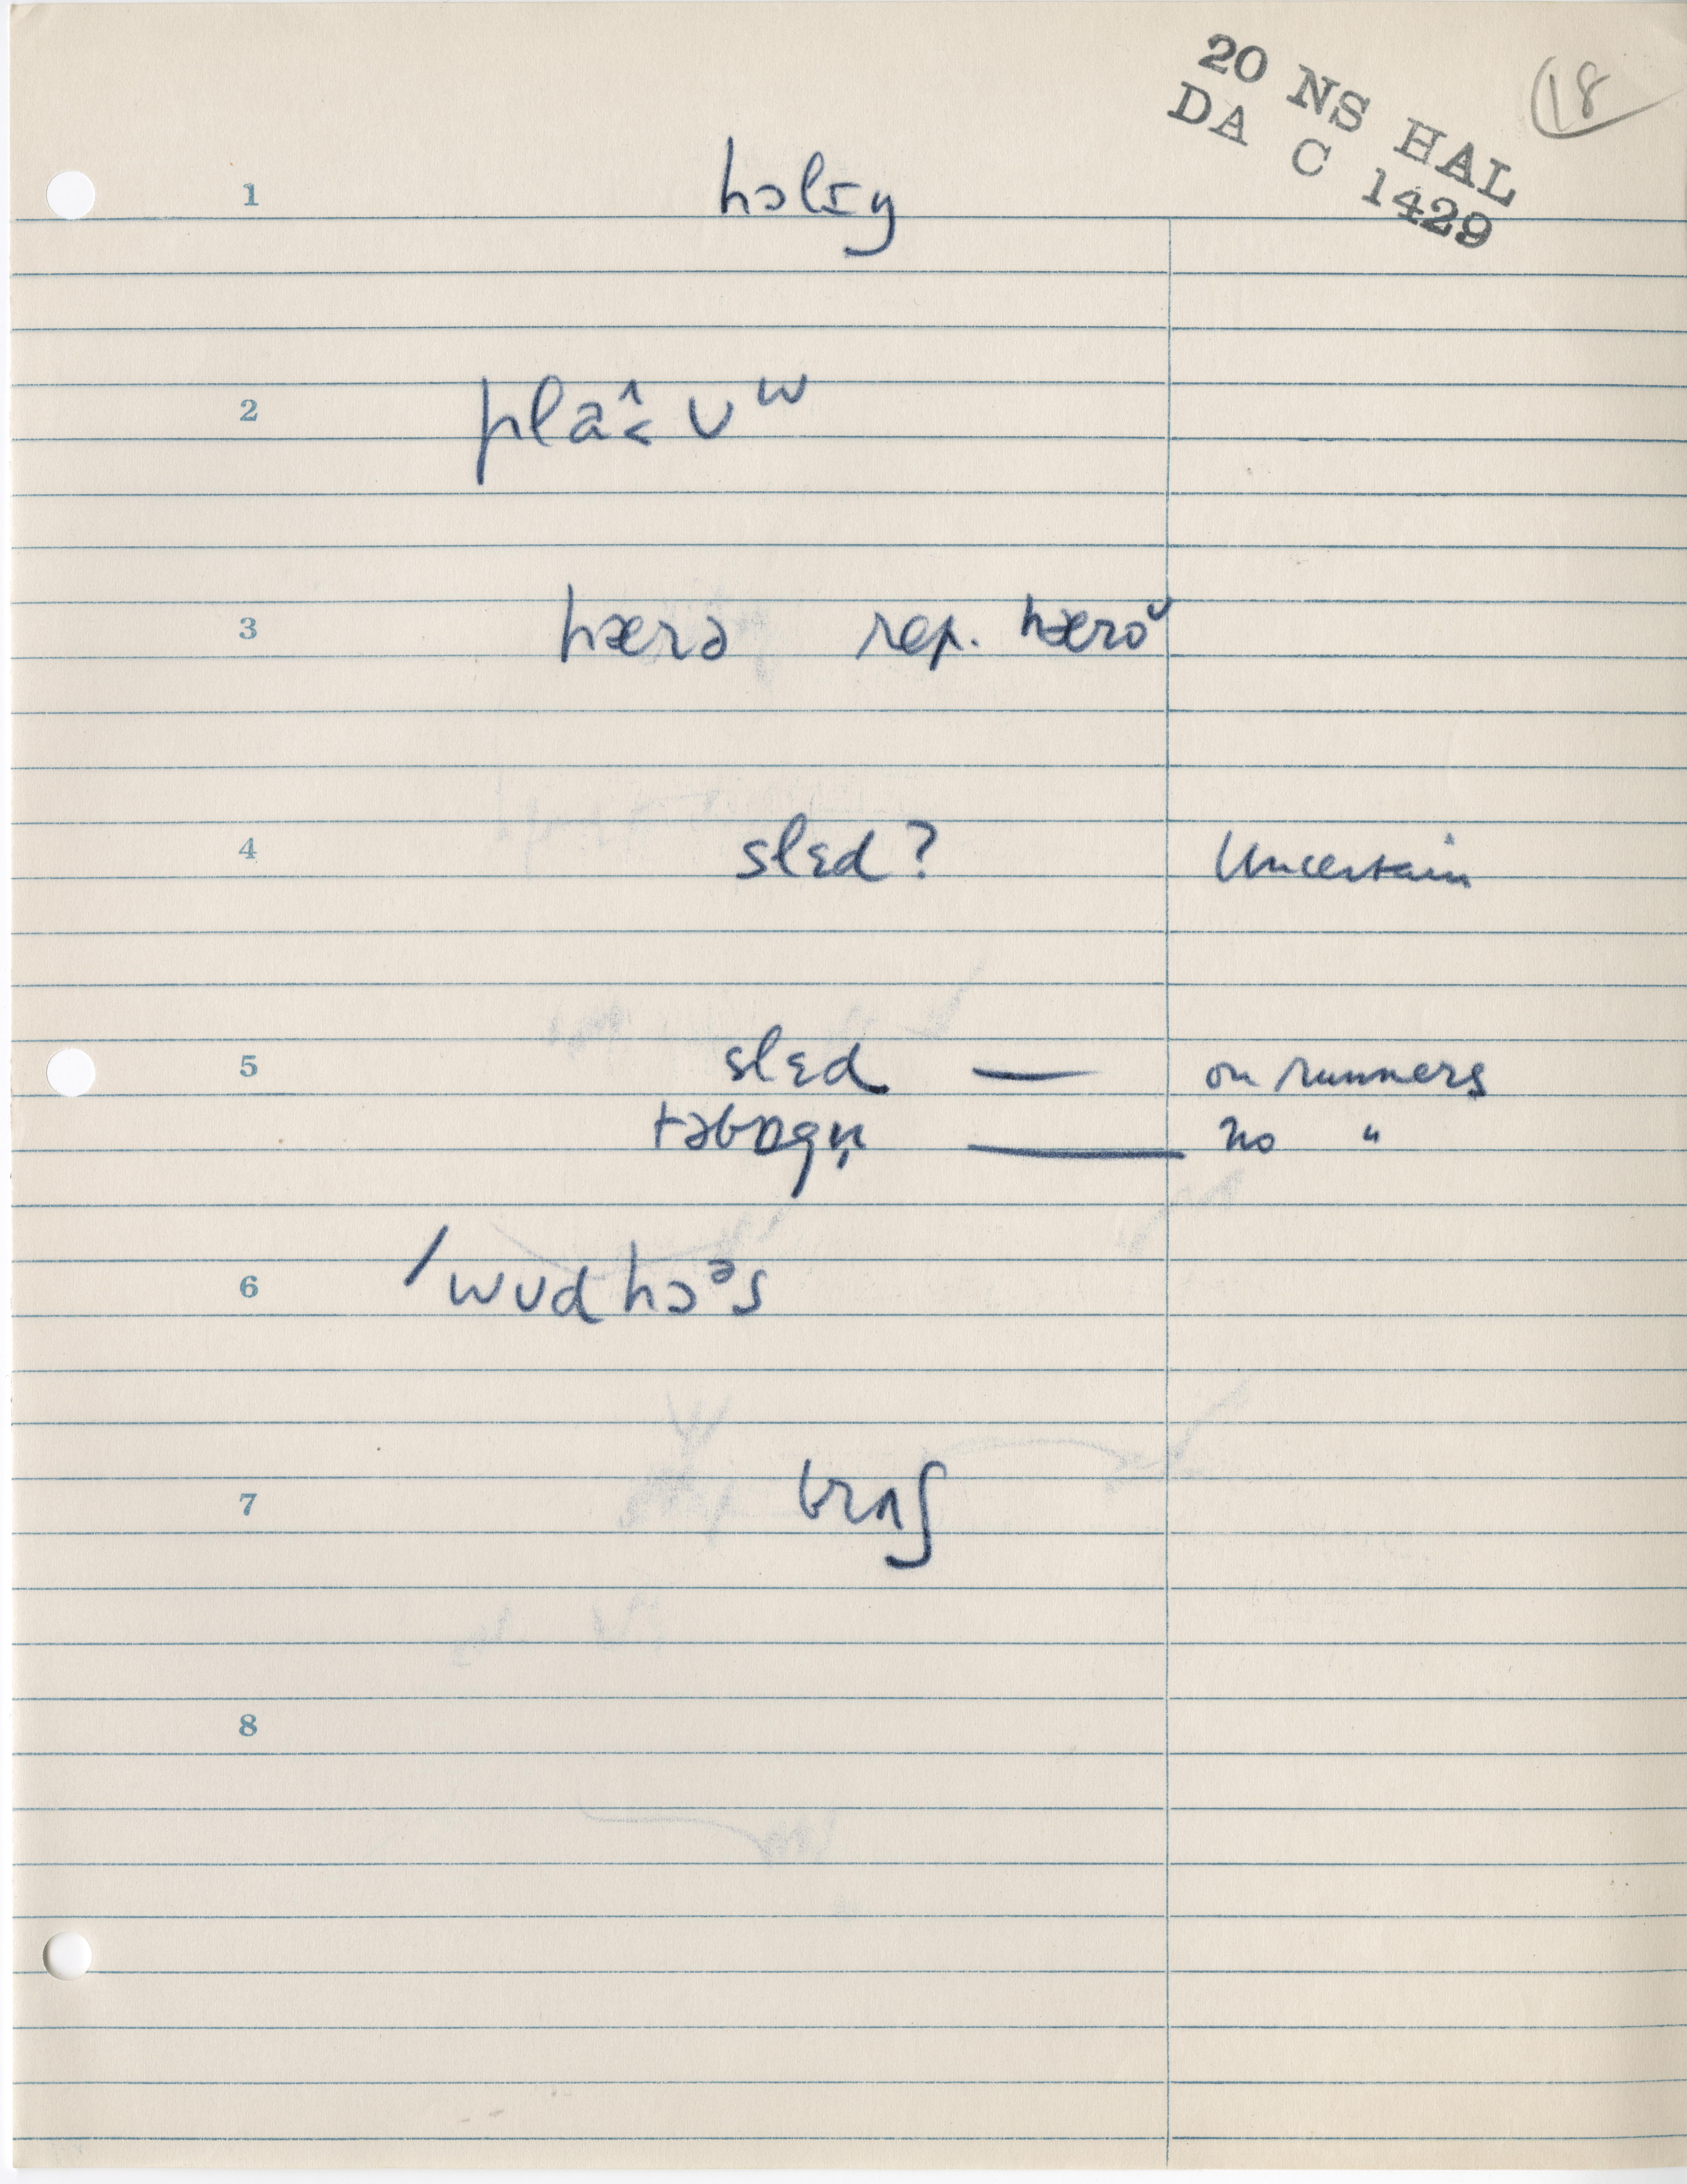 20 NS HAL
DA C 1429
18
1 hɔlɪŋ
2 pla^< ʊʷ
3 hærə rep. hæroᵛ
4 slɛd? Uncertain
5 slɛd — on runners
təbɒgn̩ — no "
6 /wʊdhɔᵊs
7 brʌʃ
8